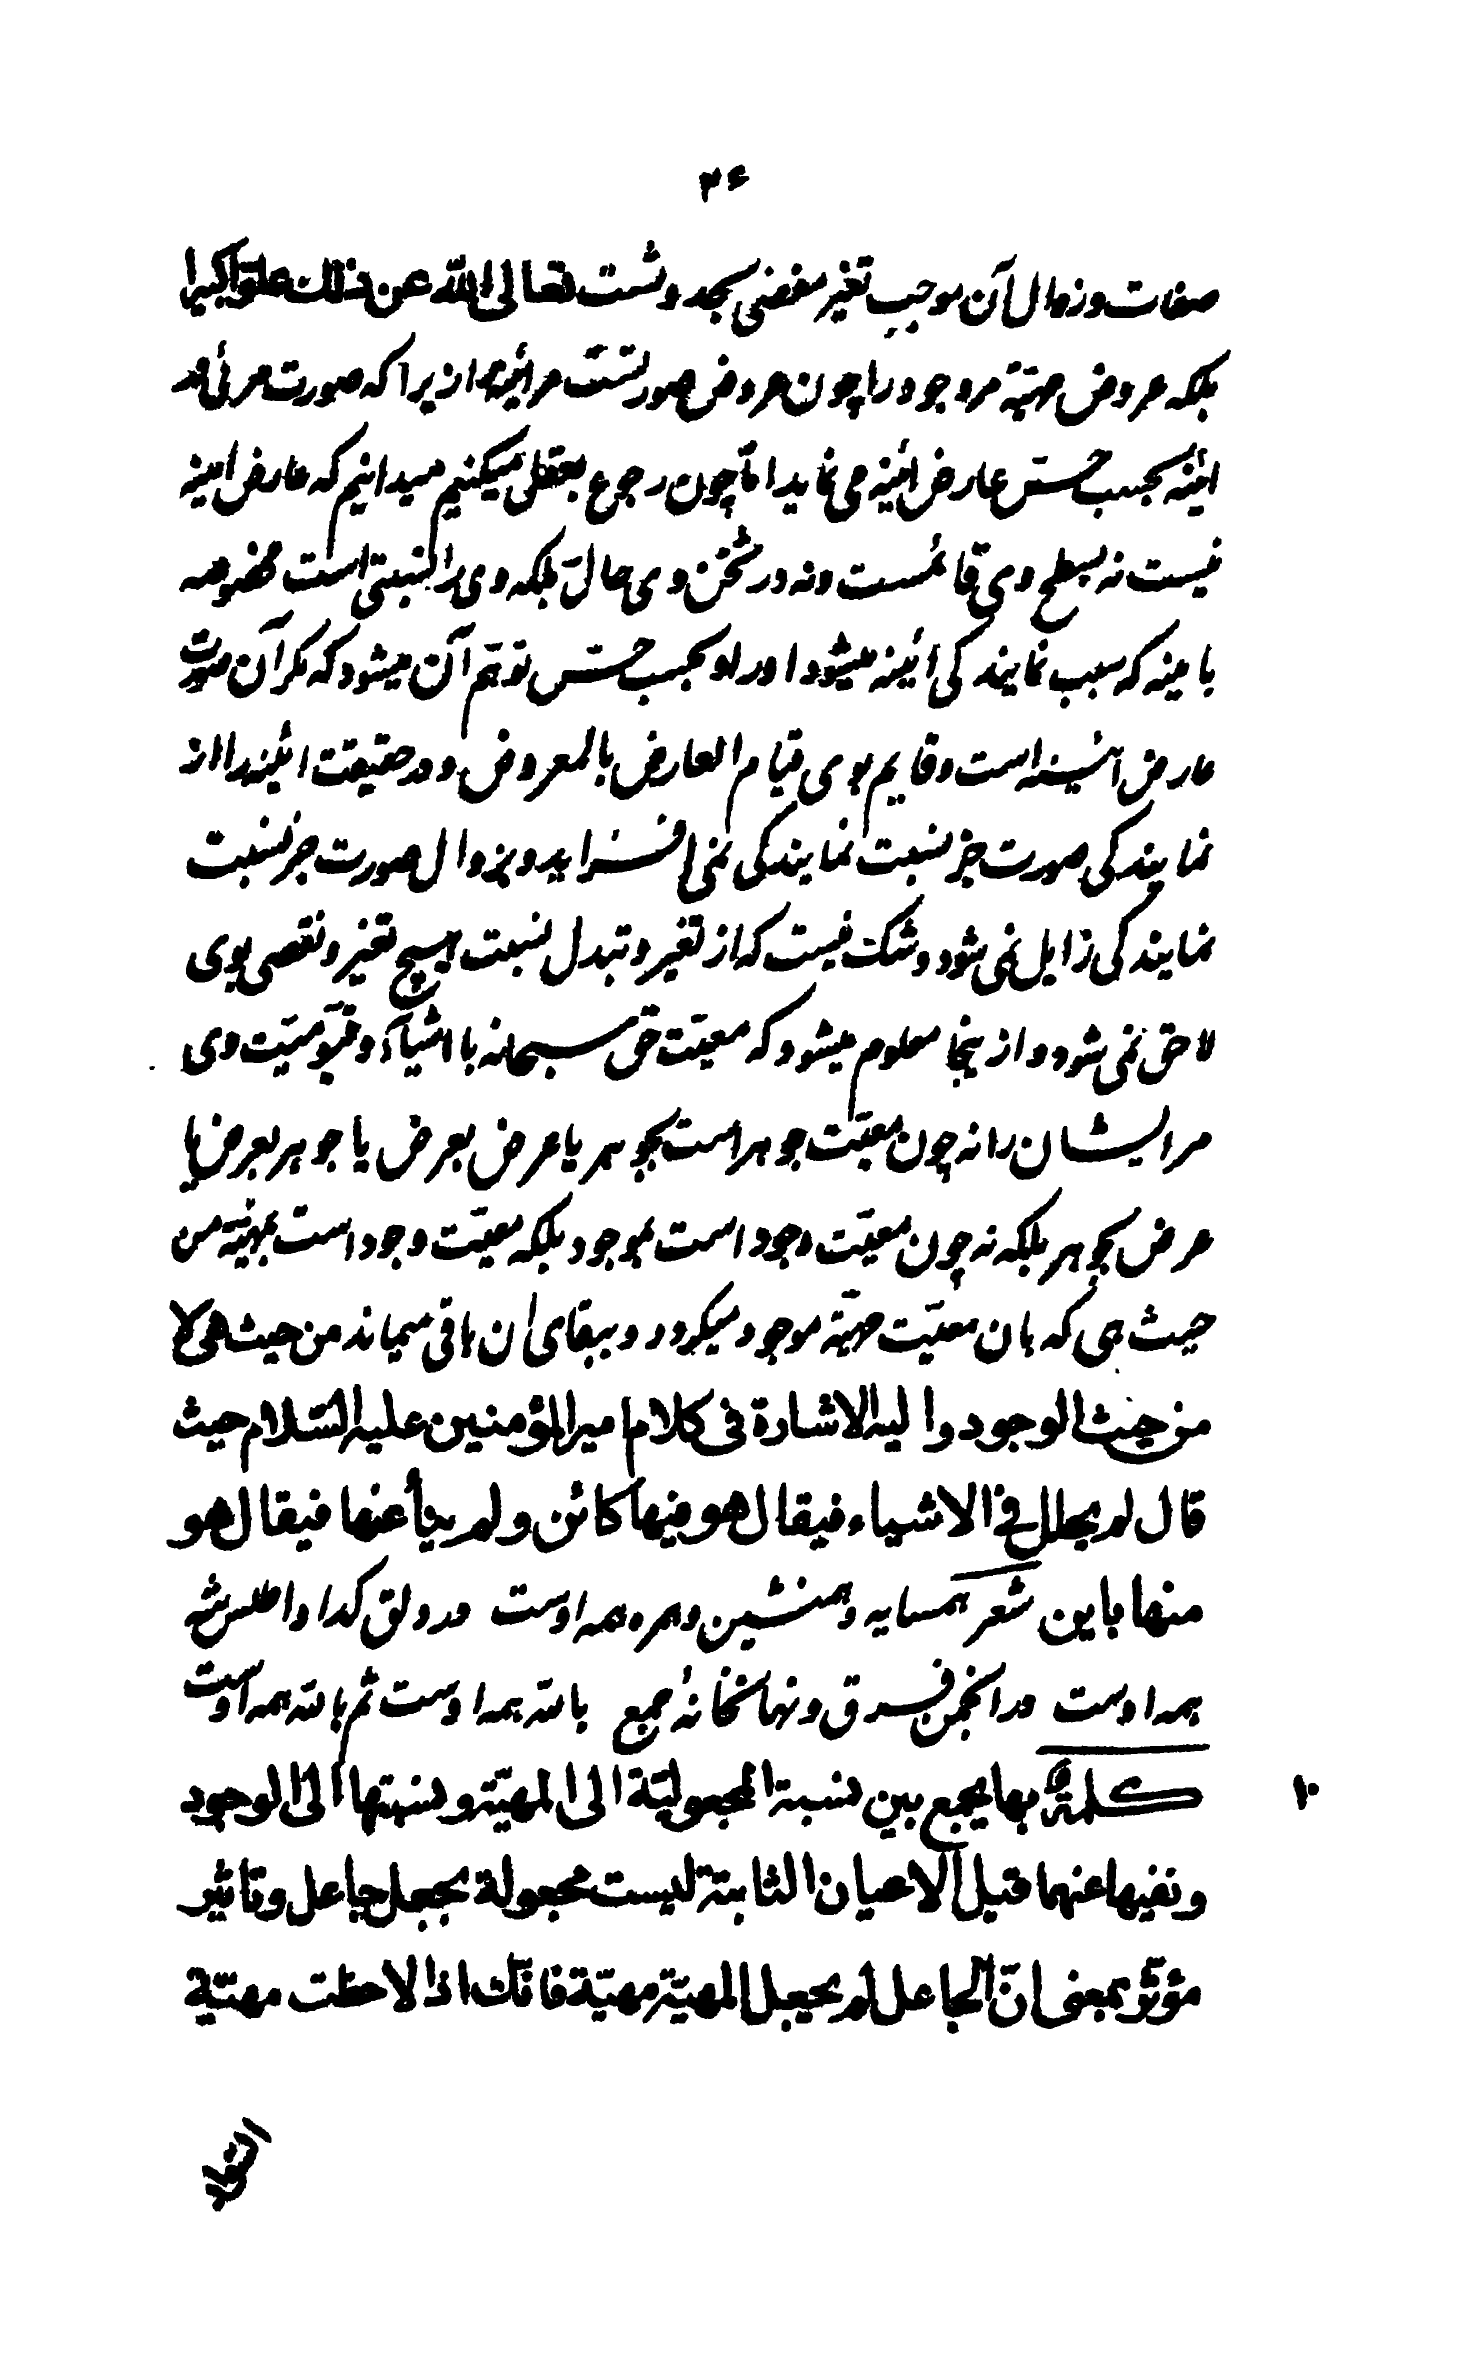 ۳۶
صفات وزوال آن موجب تغیر مفضی بحدوثست تعالی الله عن ذلك علوا کبیرا
بلکه عروض مهیّة مر وجود را چون عروض صورتست مر ائینه را زیرا که صورت مرئی در
ائینه بحسب حسّ عارض ائینه می نماید امّا چون رجوع بعقل میکنیم میدانیم که عارض ائینه
نیست نه بسطح وی قائمست ونه در ثخن وی حالّ بلکه ویرا نسبتی است مخصوصه
بائینه که سبب نمایندکی ائینه میشود اورا و بحسب حسّ توهّم آن میشود که مکر آن صورت
عارض ائینه است وقایم بوی قیام العارض بالمعروض ودر حقیقت ائینه را از
نمایندکی صورت جز نسبت نمایندکی نمی افزاید وبزوال صورت جز نسبت
نمایندکی زایل نمی شود وشک نیست که از تغیر وتبدل نسبت هیچ تغیر ونقصی بوی
لاحق نمی شود واز ینجا معلوم میشود که معیّت حقّ سبحانه با اشیآء وقیّومیّت وی
مرایشان را نه چون معیّت جوهر است بجوهر یا عرض بعرض یا جوهر بعرض یا
عرض بجوهر بلکه نه چون معیّت وجود است بموجود بلکه معیّت وجود است بمهیّة من
حیث هی که بان معیّت مهیّة موجود میکردد وببقای ان باقی میماند من حیث هی لا
من حیث الوجود والیه الاشارة فی کلام امیر المؤمنین علیه السّلام حیث
قال لم یحلل فی الاشیاء فیقال هو فیها کائن ولم ینأ عنها فیقال هو
منها باین شعر همسایه وهمنشین وهمره همه اوست در دلق کدا واطلس شه
همه اوست در انجمن فرق ونهانخانهٔ جمع بالله همه اوست ثم بالله همه اوست
۱۰
کلمة بها یجمع بین نسبة المجعولیّة الی المهیّة ونسبتها الی الوجود
ونفیها عنهما قیل الاعیان الثابتة لیست مجعولة بجعل جاعل وتاثیر
مؤثّر بمعنی انّ الجاعل لم یجعل المهیّة مهیّة فانّك اذا لاحظت مهیّة